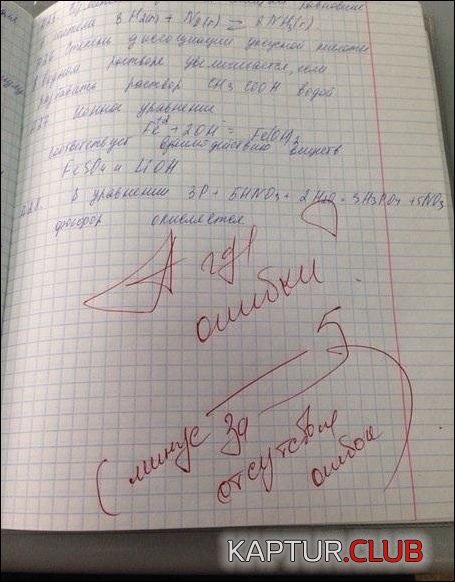 3 H2(г) + N2(г) = 2NH3(г)
Степень диссоциации уксусной кислоты
в водном растворе увеличивается, если
раствор CH3COOH водой
Ионное уравнение
Fe+2 + 2OH- = Fe(OH)2
соответствует взаимодействию веществ
FeSO4 и LiOH
В уравнении 3P + 5HNO3 + 2H2O = 3H3PO4 + 5NO
фосфор окисляется
А где
ошибки
?
5
(минус за
отсутствие
ошибок
KAPTUR.CLUB